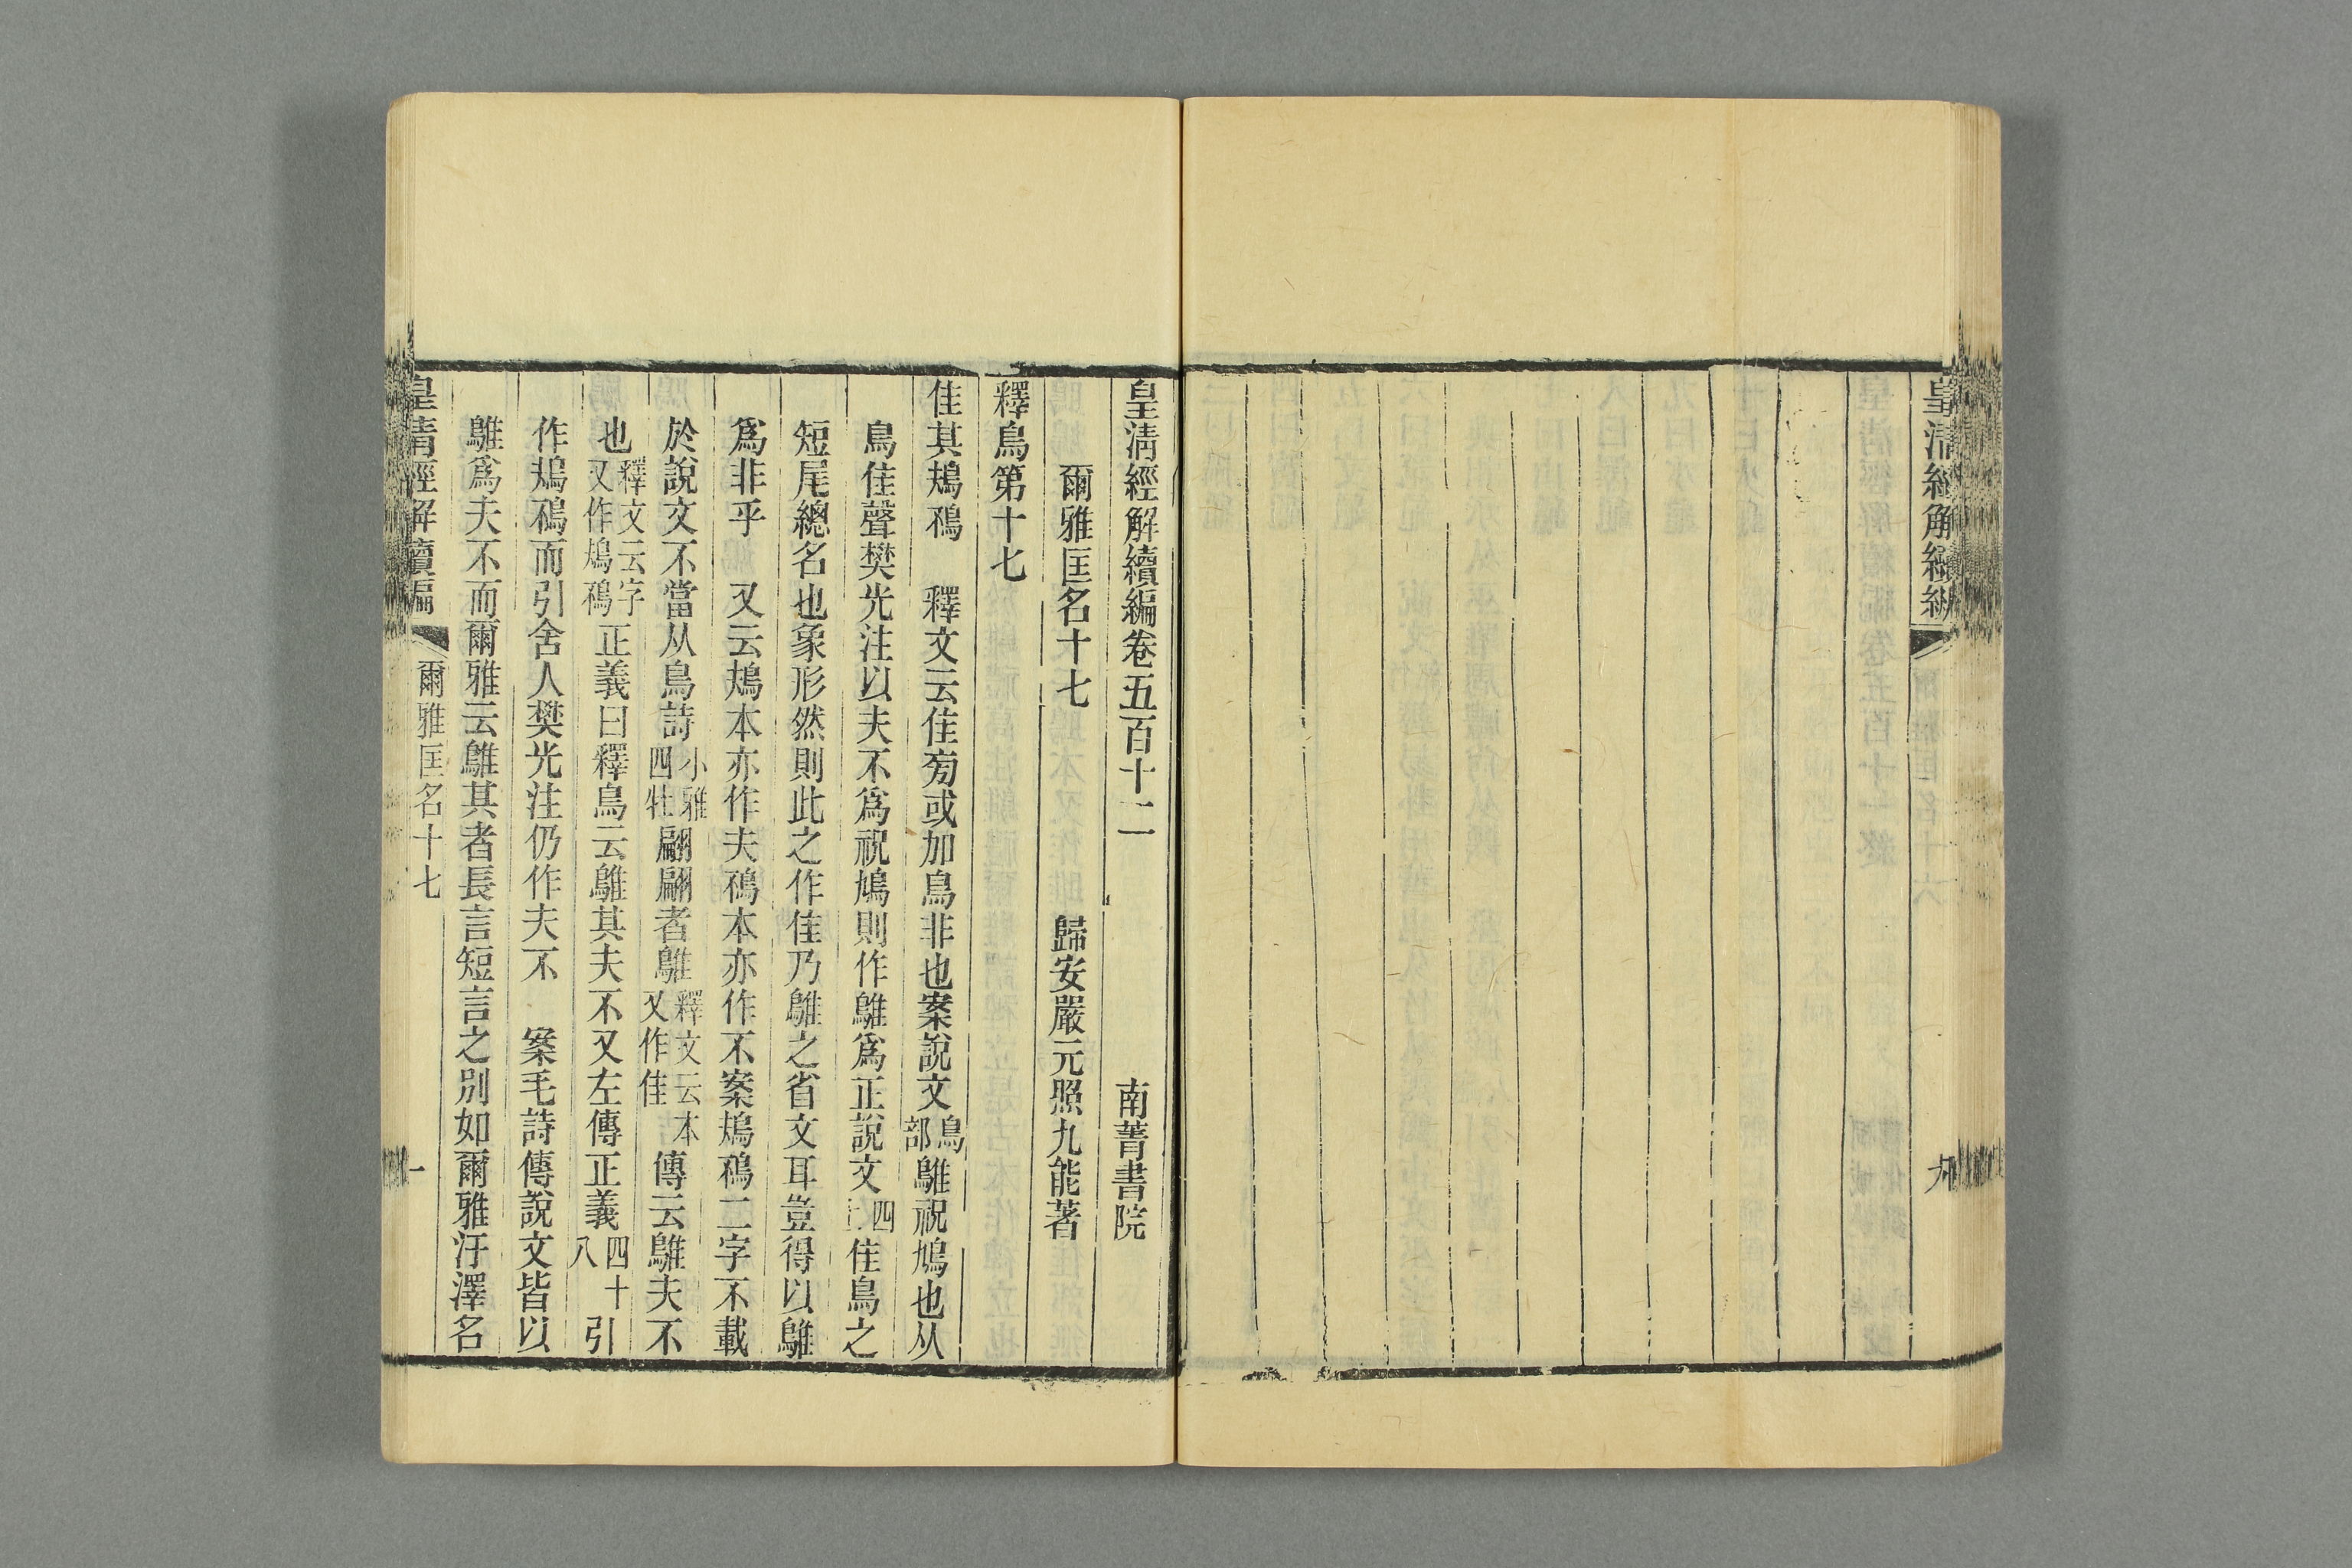 皇清經解續編卷五百十二 南菁書院
爾雅匡名十七 歸安嚴元照九能著
釋鳥第十七
隹其鳺鴀 釋文云隹旁或加鳥非也案說文鳥部鵻祝鳩也从
鳥隹聲樊光注以夫不爲祝鳩則作鵻爲正說文四上隹鳥之
短尾總名也象形然則此之作隹乃鵻之省文耳豈得以鵻
爲非乎 又云鳺本亦作夫鴀本亦作不案鳺鴀二字不載
於說文不當从鳥詩小雅四牡翩翩者鵻釋文云本又作隹傳云鵻夫不
也釋文云字又作鳺鴀正義曰釋鳥云鵻其夫不又左傳正義四十八引
作鳺鴀而引舍人樊光注仍作夫不 案毛詩傳說文皆以
鵻爲夫不而爾雅云鵻其者長言短言之別如爾雅汙澤名
皇清經解續編 爾雅匡名十七 一